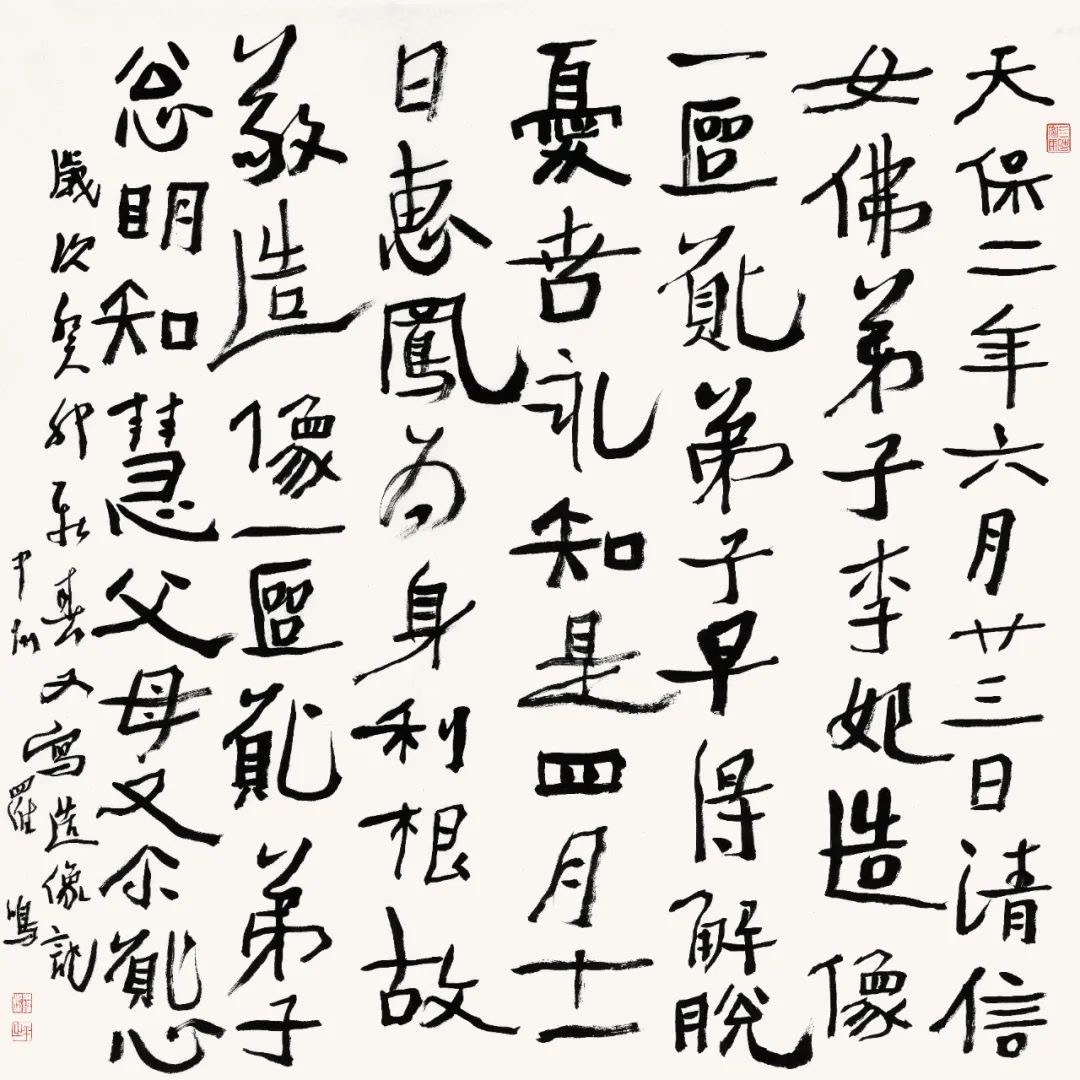 天保二年六月廿三日清信
女佛弟子李妃造像
一區願弟子早得解脫
憂苦知是四月十一
日惠鳳為身利根故
敬造像一區願弟子
忩明知慧父母又尒願
歲次癸卯新春又寫造像記
中州羅鳴